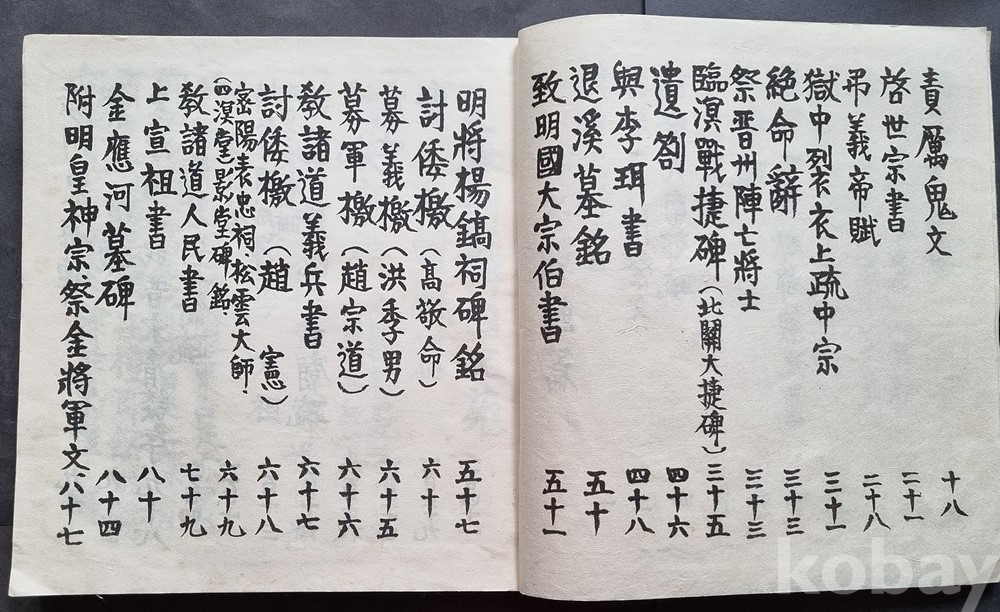 責厲鬼文 十八
啓世宗書 二十一
弔義帝賦 二十八
獄中列衣上疏中宗 三十一
絶命辭 三十三
祭晋州陣亡將士 三十三
臨溟戰捷碑(北關大捷碑) 三十五
遺劄 四十六
與李珥書 四十八
退溪墓銘 五十
致明國大宗伯書 五十一
明將楊鎬祠碑銘 五十七
討倭檄(高敬命) 六十
募義檄(洪季男) 六十五
募軍檄(趙宗道) 六十六
敎諸道義兵書 六十七
討倭檄(趙憲) 六十八
密陽表忠祠、松雲大師、
(四溟堂)影堂碑銘、 六十九
敎諸道人民書 七十九
上宣祖書 八十
金應河墓碑 八十四
附明皇神宗祭金將軍文、八十七
kobay